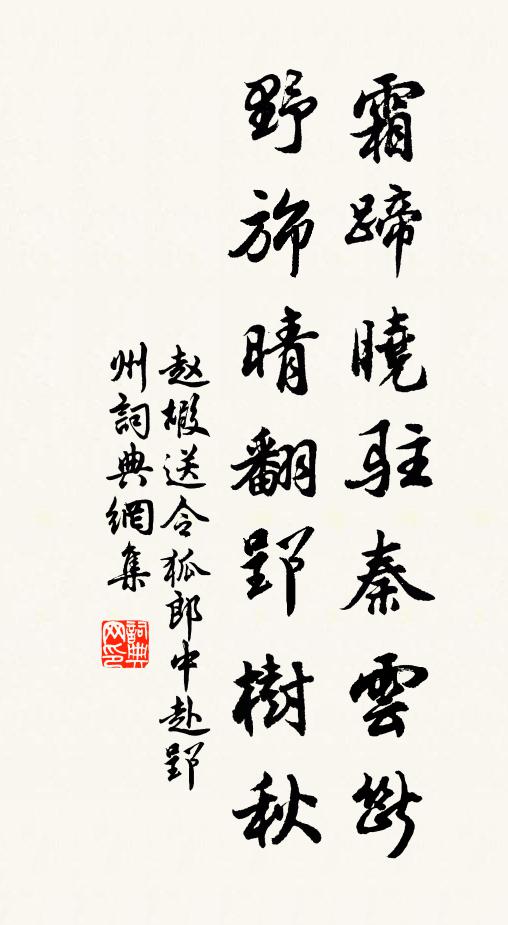 霜蹄曉駐秦雲斷
野旆晴翻郢樹秋
赵嘏送令狐郎中赴郢
州詞典網集
詞典
网印